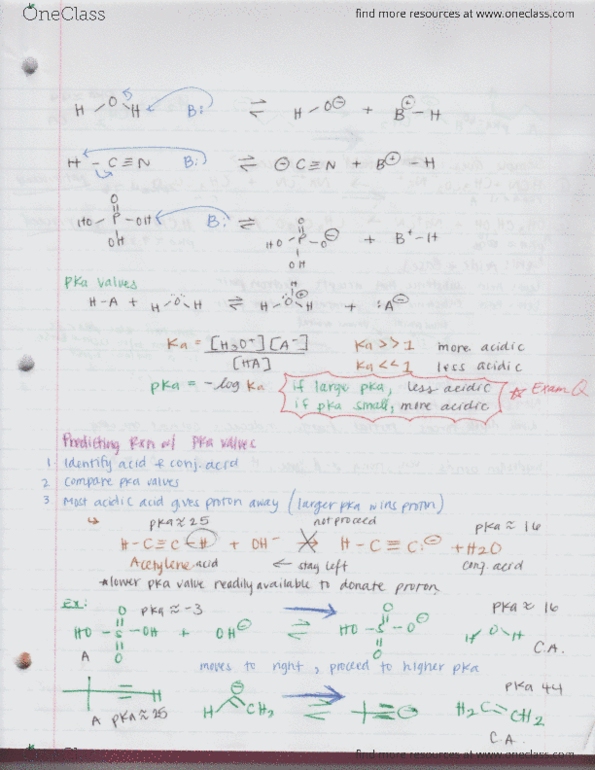 OneClass
find more resources at www.oneclass.com
H O H B: ⇌ H-O⊖ + B⊕-H
H-C≡N B: ⇌ ⊖C≡N + B⊕-H
O
HO-P-OH B: ⇌ HO-P-O⊖ + B⁺-H
OH
OH
pKa values
H-A + H-Ö-H ⇌ H-O⊕-H + :A⊖
H
Ka = [H3O+][A-] Ka >> 1 more acidic
[HA] Ka << 1 less acidic
pKa = -log Ka if large pka, less acidic Exam Q
if pka small, more acidic
Predicting Rxn w/ pKa values
1 Identify acid & conj. acid
2 compare pka values
3 Most acidic acid gives proton away (larger pka wins proton)
pka ≈ 25 not proceed pka ≈ 16
H-C≡C-H + OH- H-C≡C:⊖ + H2O
Acetylene acid ← stay left conj. acid
*lower pka value readily available to donate proton.
Ex: pka ≈ -3 pka ≈ 16
HO-S-OH + OH⊖ ⇌ HO-S-O⊖ H O H
A C.A.
moves to right, proceed to higher pka
pka 44
H H CH2 ⇌ H2C=CH2
A pka ≈ 25 C.A.
find more resources at www.oneclass.com